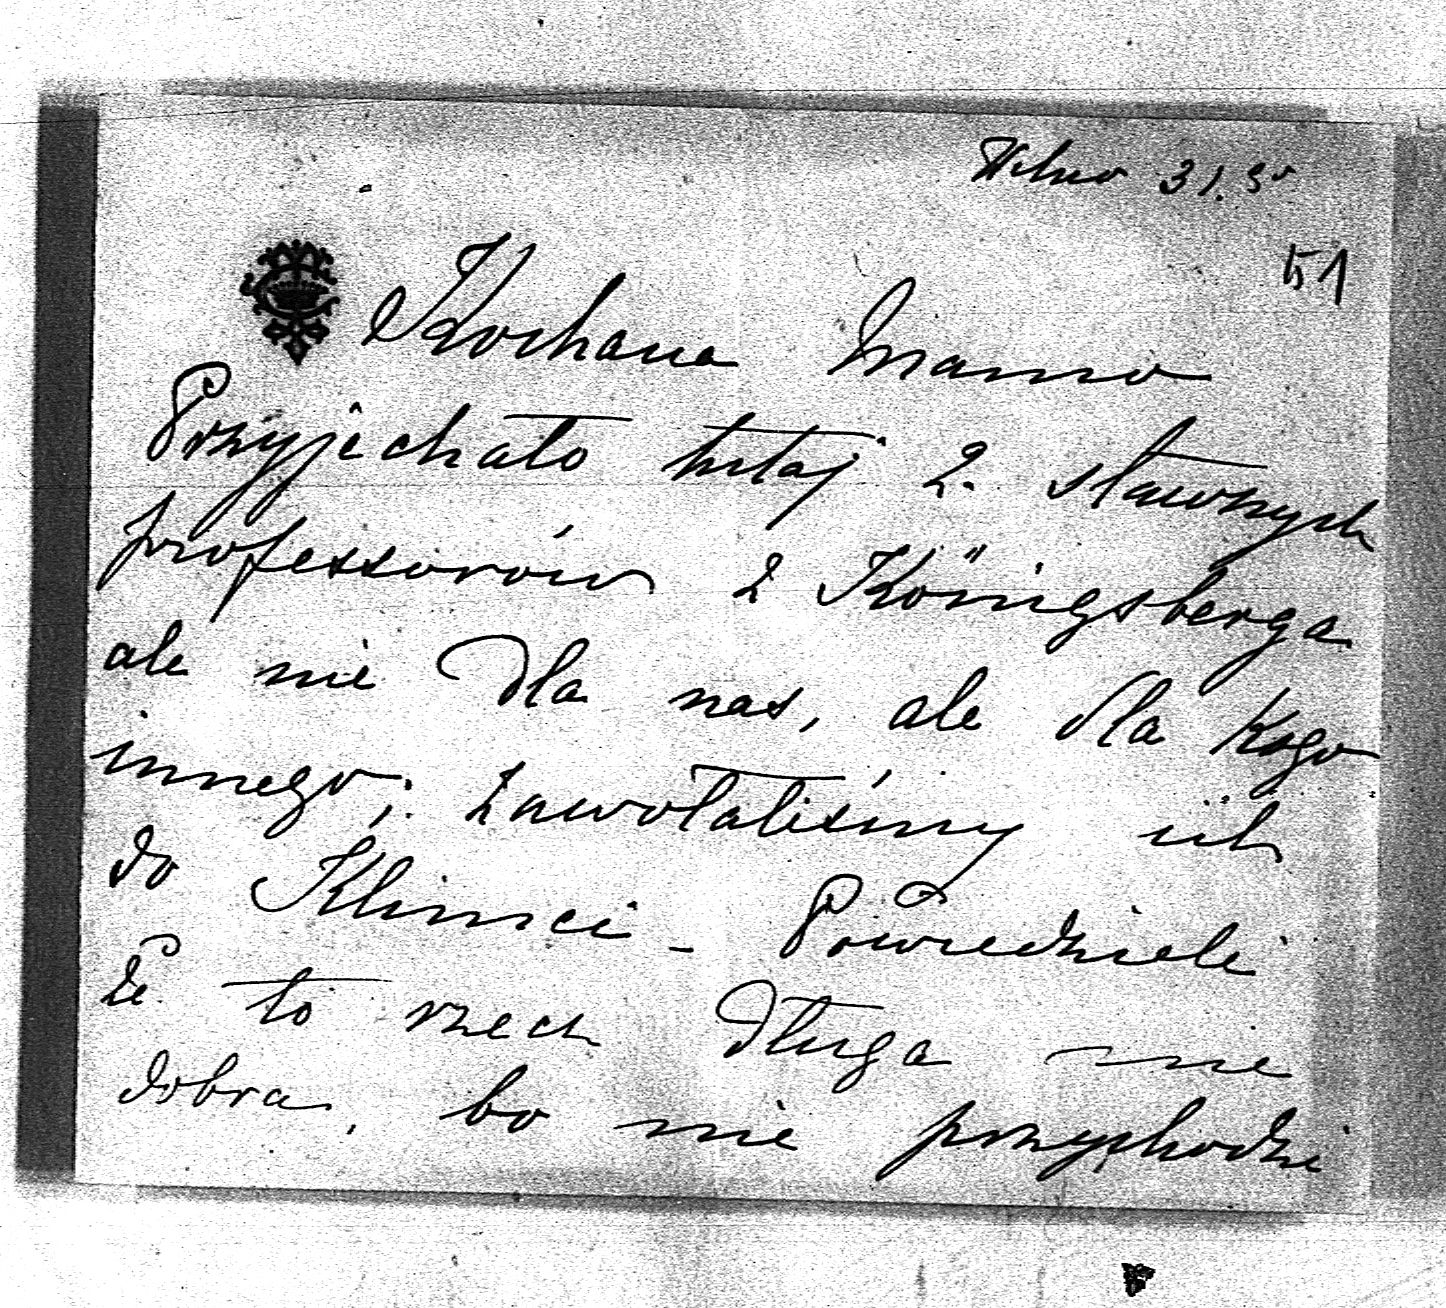 Wilno 31.
51
Kochana Mamo
Przyjechało tutaj 2. sławnych
professorów z Königsberga
ale nie dla nas, ale dla kogo
innego; zawołaliśmy ich
do Klimci - Powiedzieli
że to rzecz długa nie
dobra, bo nie przychodzi